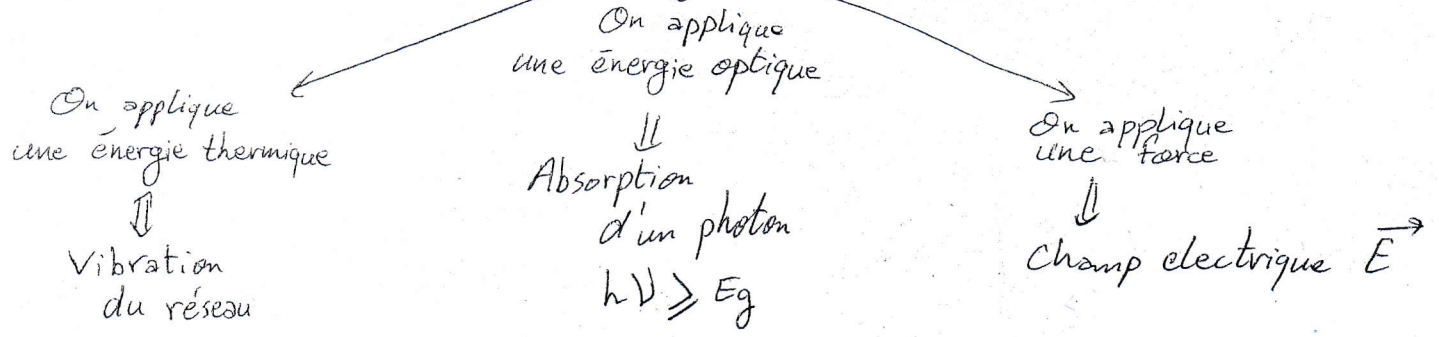 On applique
une énergie thermique
⇕
Vibration
du réseau
On applique
une énergie optique
⇓
Absorption
d'un photon
hν ≥ Eg
On applique
une force
⇓
Champ electrique E⃗